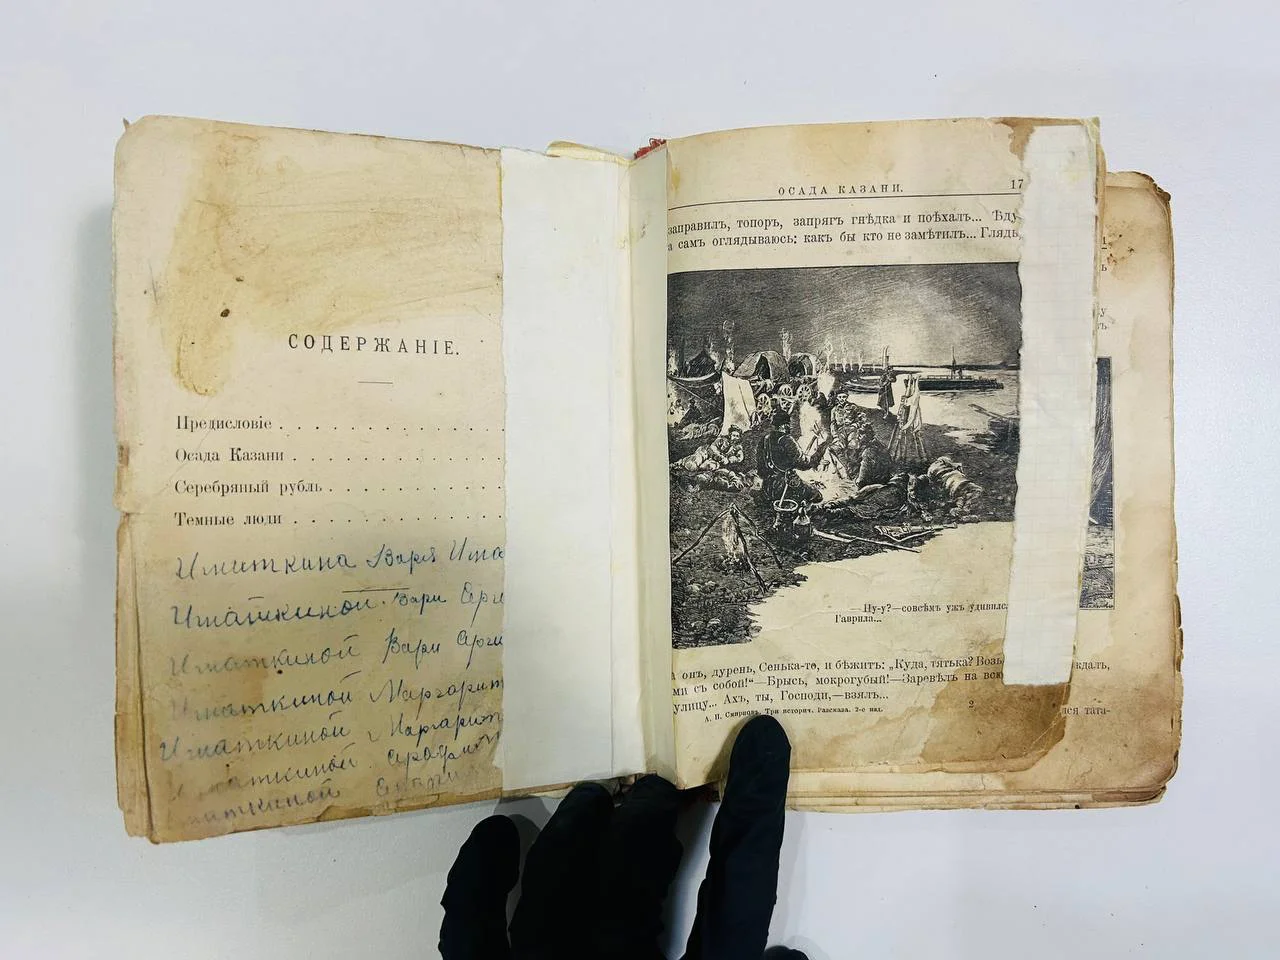 СОДЕРЖАНІЕ.
Предисловіе . . . . . . . . . . . . . .
Осада Казани . . . . . . . . . . . . .
Серебряный рубль . . . . . . . . . . .
Темные люди . . . . . . . . . . . . .
Игнаткина Варя Игна
Игнаткиной Вари Серг
Игнаткиной Вари Серги
Игнаткиной Маргарит
Игнаткиной Маргарит
наткиной
наткиной
ОСАДА КАЗАНИ. 17
заправилъ, топоръ, запрягъ гнѣдка и поѣхалъ... Ѣду
а самъ оглядываюсь: какъ бы кто не замѣтилъ... Глядь,
—Ну-у?—совсѣмъ ужъ удивился
Гаврила...
онъ, дурень, Сенька-то, и бѣжитъ: „Куда, тятька? Возь
ми съ собой!“—Брысь, мокрогубый!—Заревѣлъ на всю
улицу... Ахъ, ты, Господи,—взялъ...
А. П. Смирновъ. Три историч. Разсказа. 2-е изд. 2
ждалъ,
лся тата-